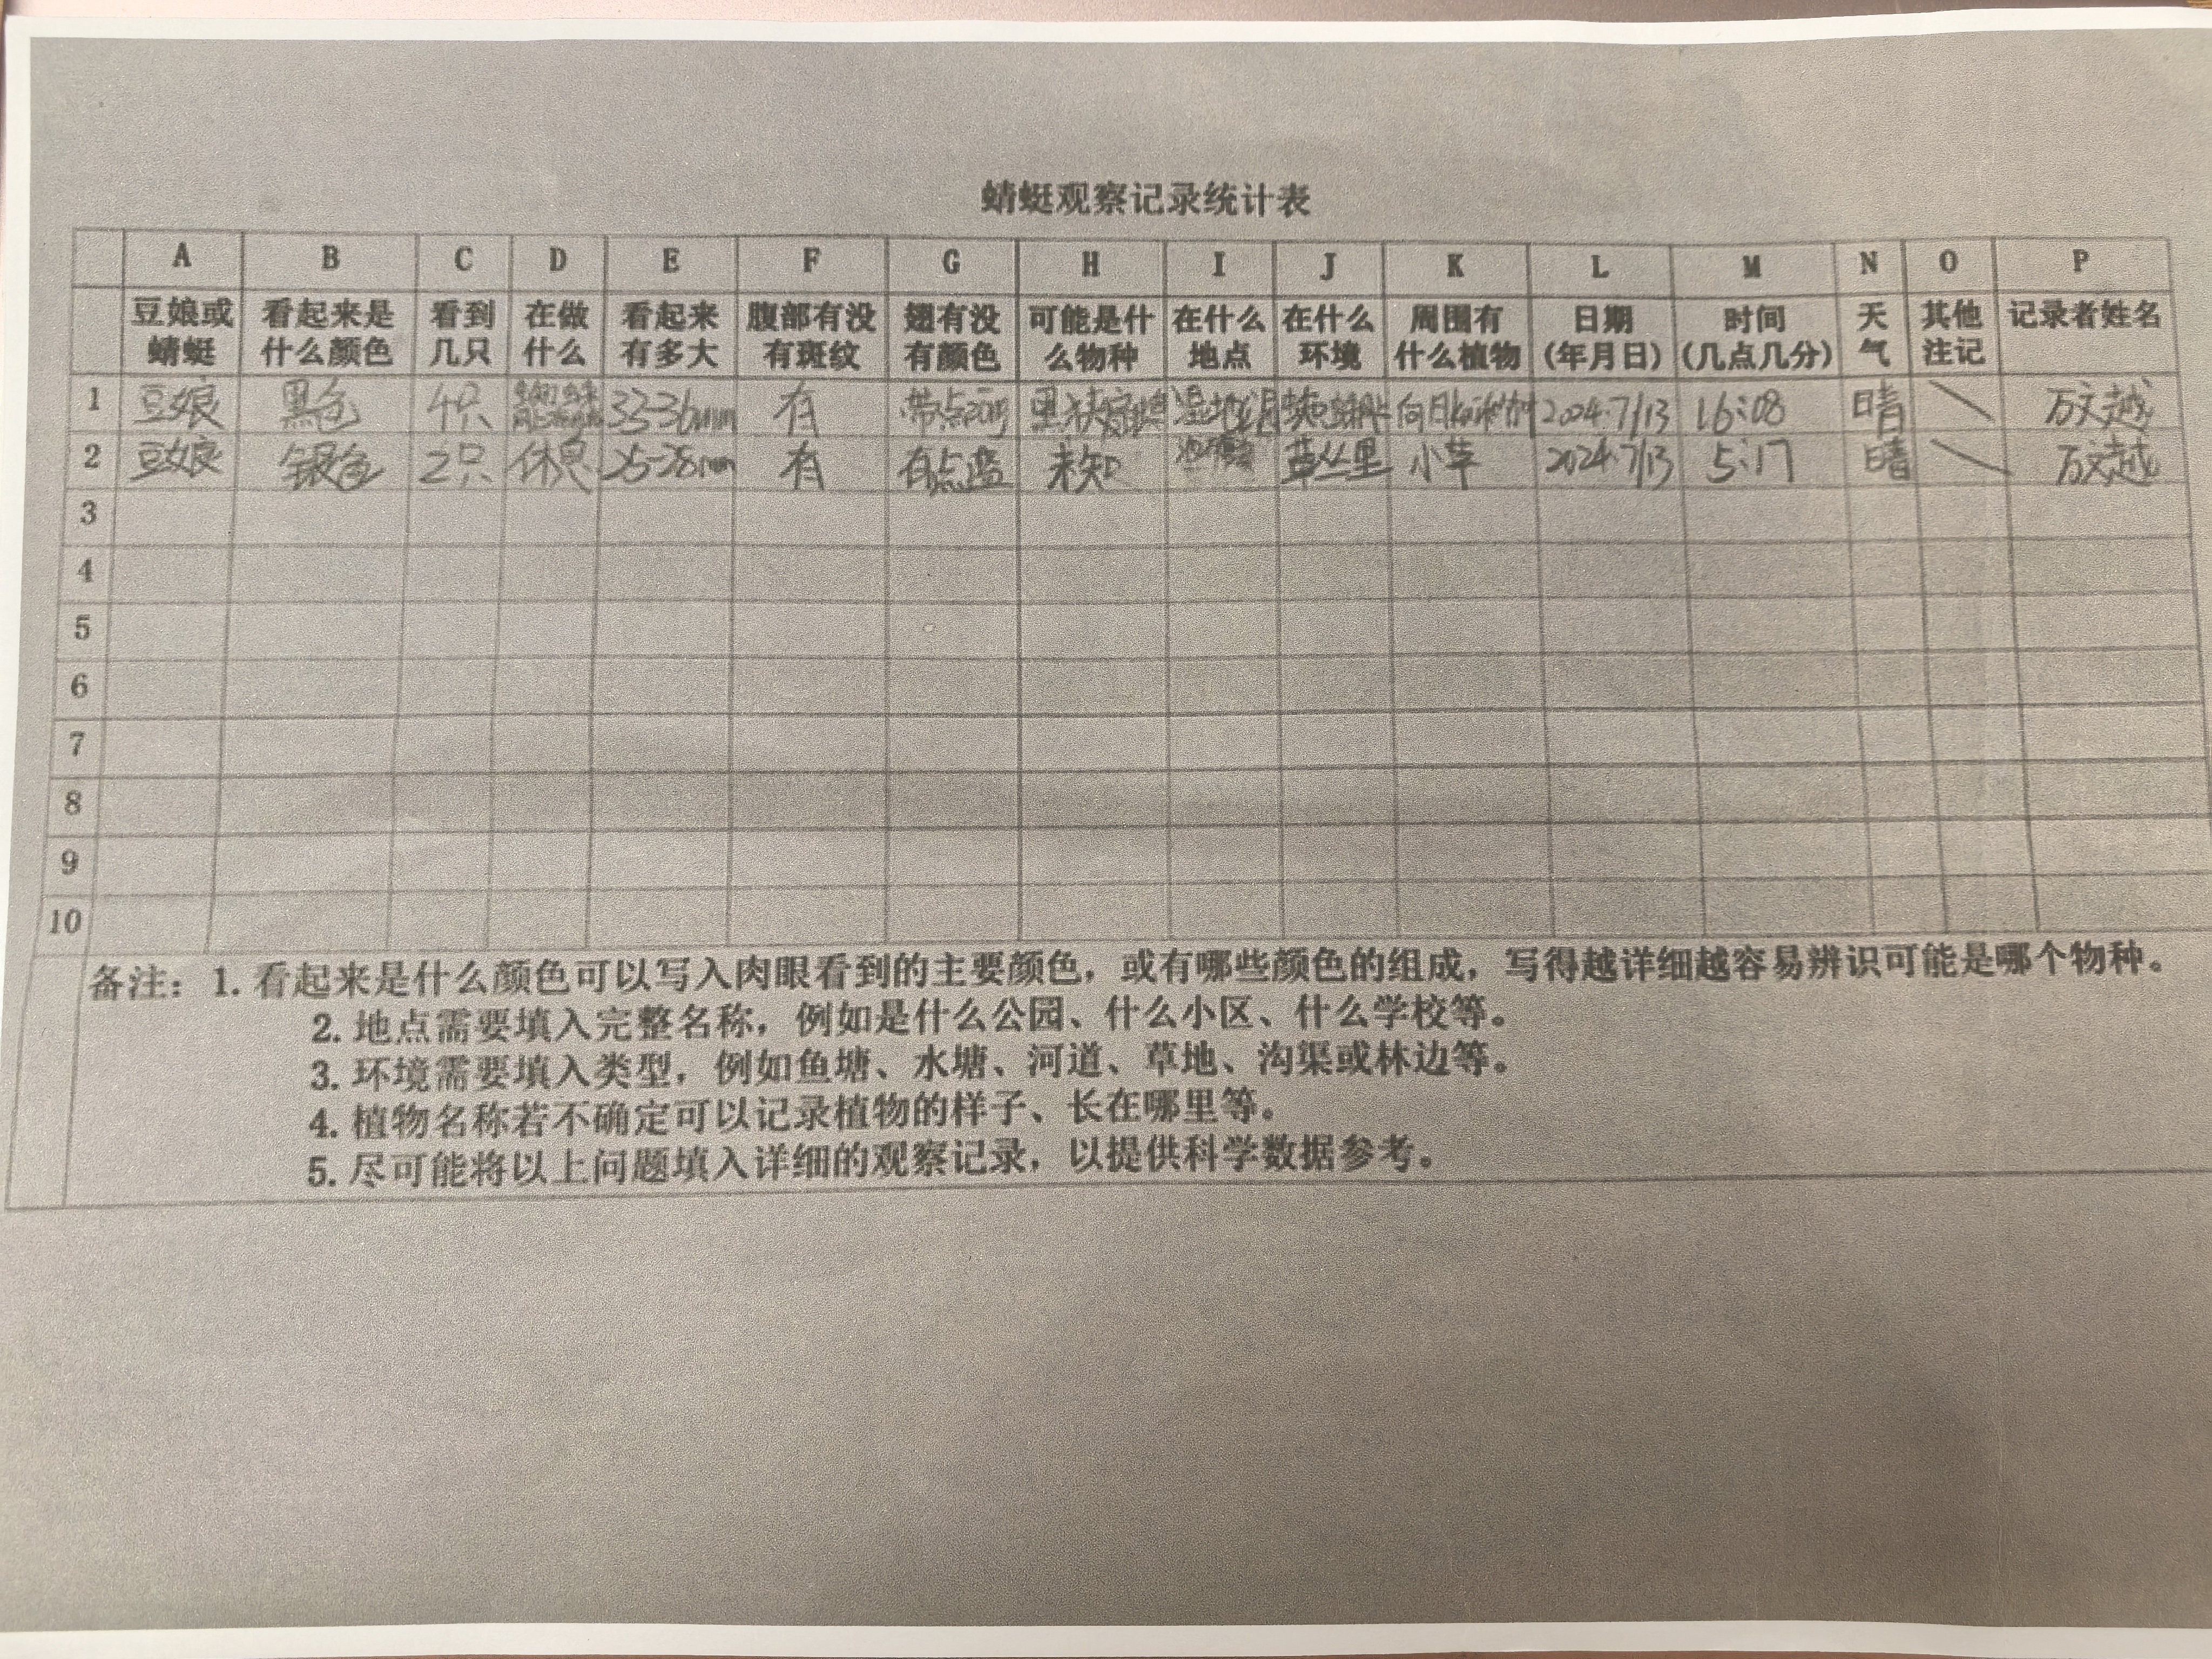 蜻蜓观察记录统计表
A B C D E F G H I J K L M N O P
豆娘或蜻蜓 看起来是什么颜色 看到几只 在做什么 看起来有多大 腹部有没有斑纹 翅有没有颜色 可能是什么物种 在什么地点 在什么环境 周围有什么植物 日期(年月日) 时间(几点几分) 天气 其他注记 记录者姓名
1 豆娘 黑色 4只 33-36mm 有 2024.7/13 16:08 晴 万文越
2 豆娘 银色 2只 休息 25-28mm 有 有点蓝 未知 草丛里 小草 2024.7/13 5:17 晴 万文越
3
4
5
6
7
8
9
10
备注：1. 看起来是什么颜色可以写入肉眼看到的主要颜色，或有哪些颜色的组成，写得越详细越容易辨识可能是哪个物种。
2. 地点需要填入完整名称，例如是什么公园、什么小区、什么学校等。
3. 环境需要填入类型，例如鱼塘、水塘、河道、草地、沟渠或林边等。
4. 植物名称若不确定可以记录植物的样子、长在哪里等。
5. 尽可能将以上问题填入详细的观察记录，以提供科学数据参考。